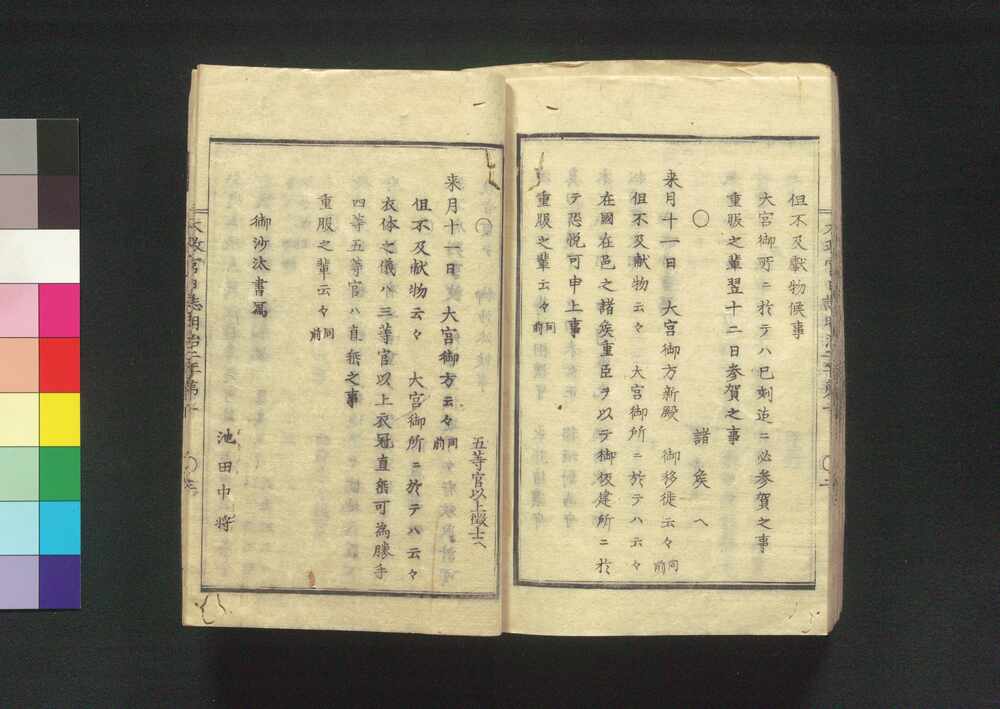 但不及獻物候事
大宮御所ニ於テハ巳刻迄ニ必参賀之事
重服之輩翌十二日参賀之事
〇
諸矦ヘ
来月十一日 大宮御方新殿 御移徙云々同前
但不及献物云々 大宮御所ニ於テハ云々
在國在邑之諸矦重臣ヲ以テ御仮建所ニ於
テ恐悦可申上事
重服之輩云々同前
〇
五等官以上徴士ヘ
来月十一日 大宮御方云々同前
但不及献物云々 大宮御所ニ於テハ云々
衣体之儀ハ三等官以上衣冠直垂可為勝手
四等五等官ハ直垂之事
重服之輩云々同前
御沙汰書冩
池田中将
太政官日誌明治二年第十